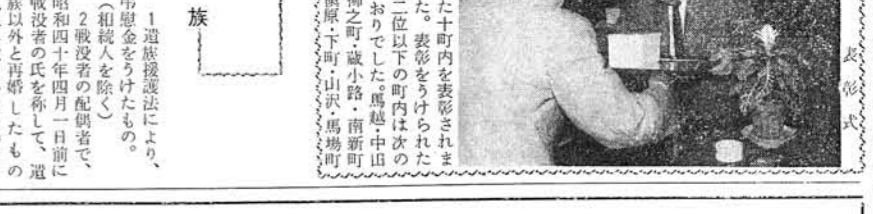 表彰式
た十町内を表彰されま
た。表彰をうけられた
二位以下の町内は次の
おりでした。馬越・中田
柳之町・蔵小路・南新町
原・下町・山沢・馬場町
族
1遺族援護法により、
弔慰金をうけたもの。
(相続人を除く)
2戦没者の配偶者で、
昭和四十年四月一日前に
戦没者の氏を称して、遺
族以外と再婚したもの